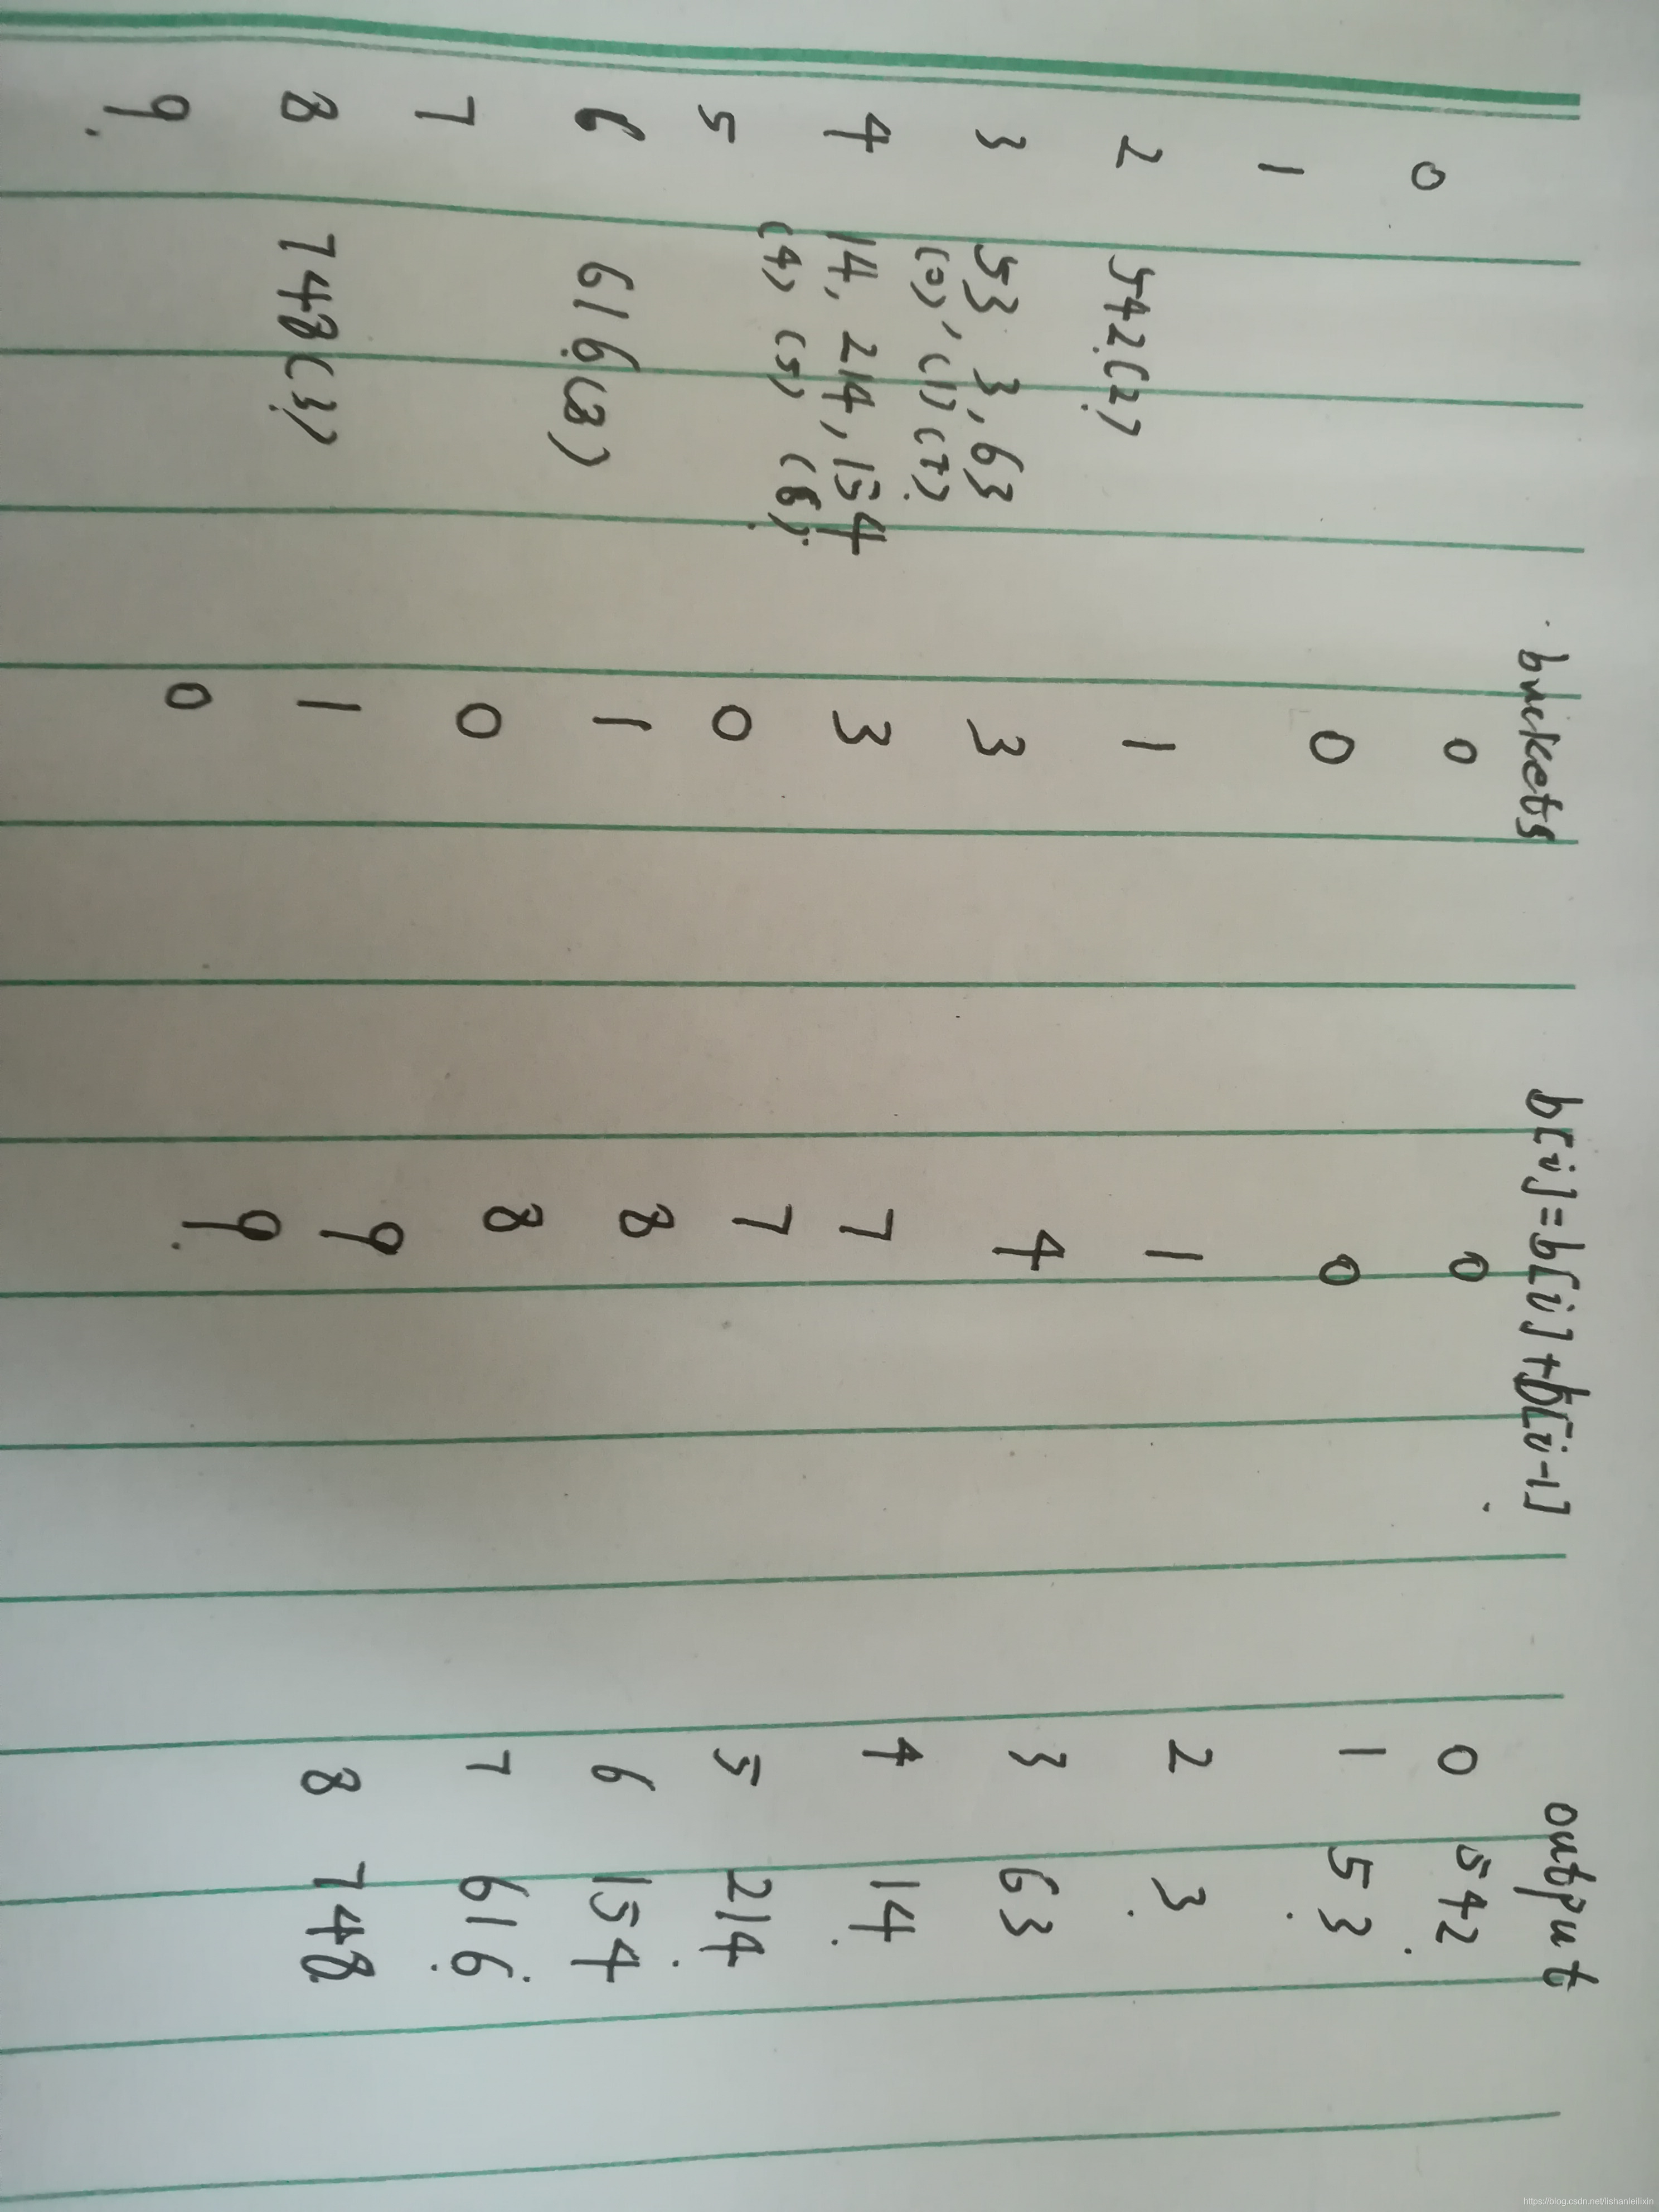 buckets b[i]=b[i]+b[i-1] output
0 0 0 0 542
1 0 0 1 53
2 542(2) 1 1 2 3
3 53 3,63 3 4 3 63
(0),(1)(7)
4 14, 214,154 3 7 4 14
(4) (5) (6)
5 0 7 5 214
6 616(8) 1 8 6 154
7 0 8 7 616
8 748(3) 1 9 8 748
9 0 9
https://blog.csdn.net/lishanleilixin